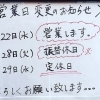 営業日変更のお知らせ
22日(水) 営業します。
28日(火) 振替休日
29日(水) 定休日
ろしくお願い致します…